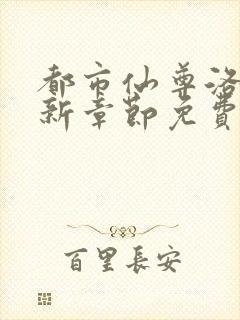 都市仙尊洛
新章節免費
百里長安